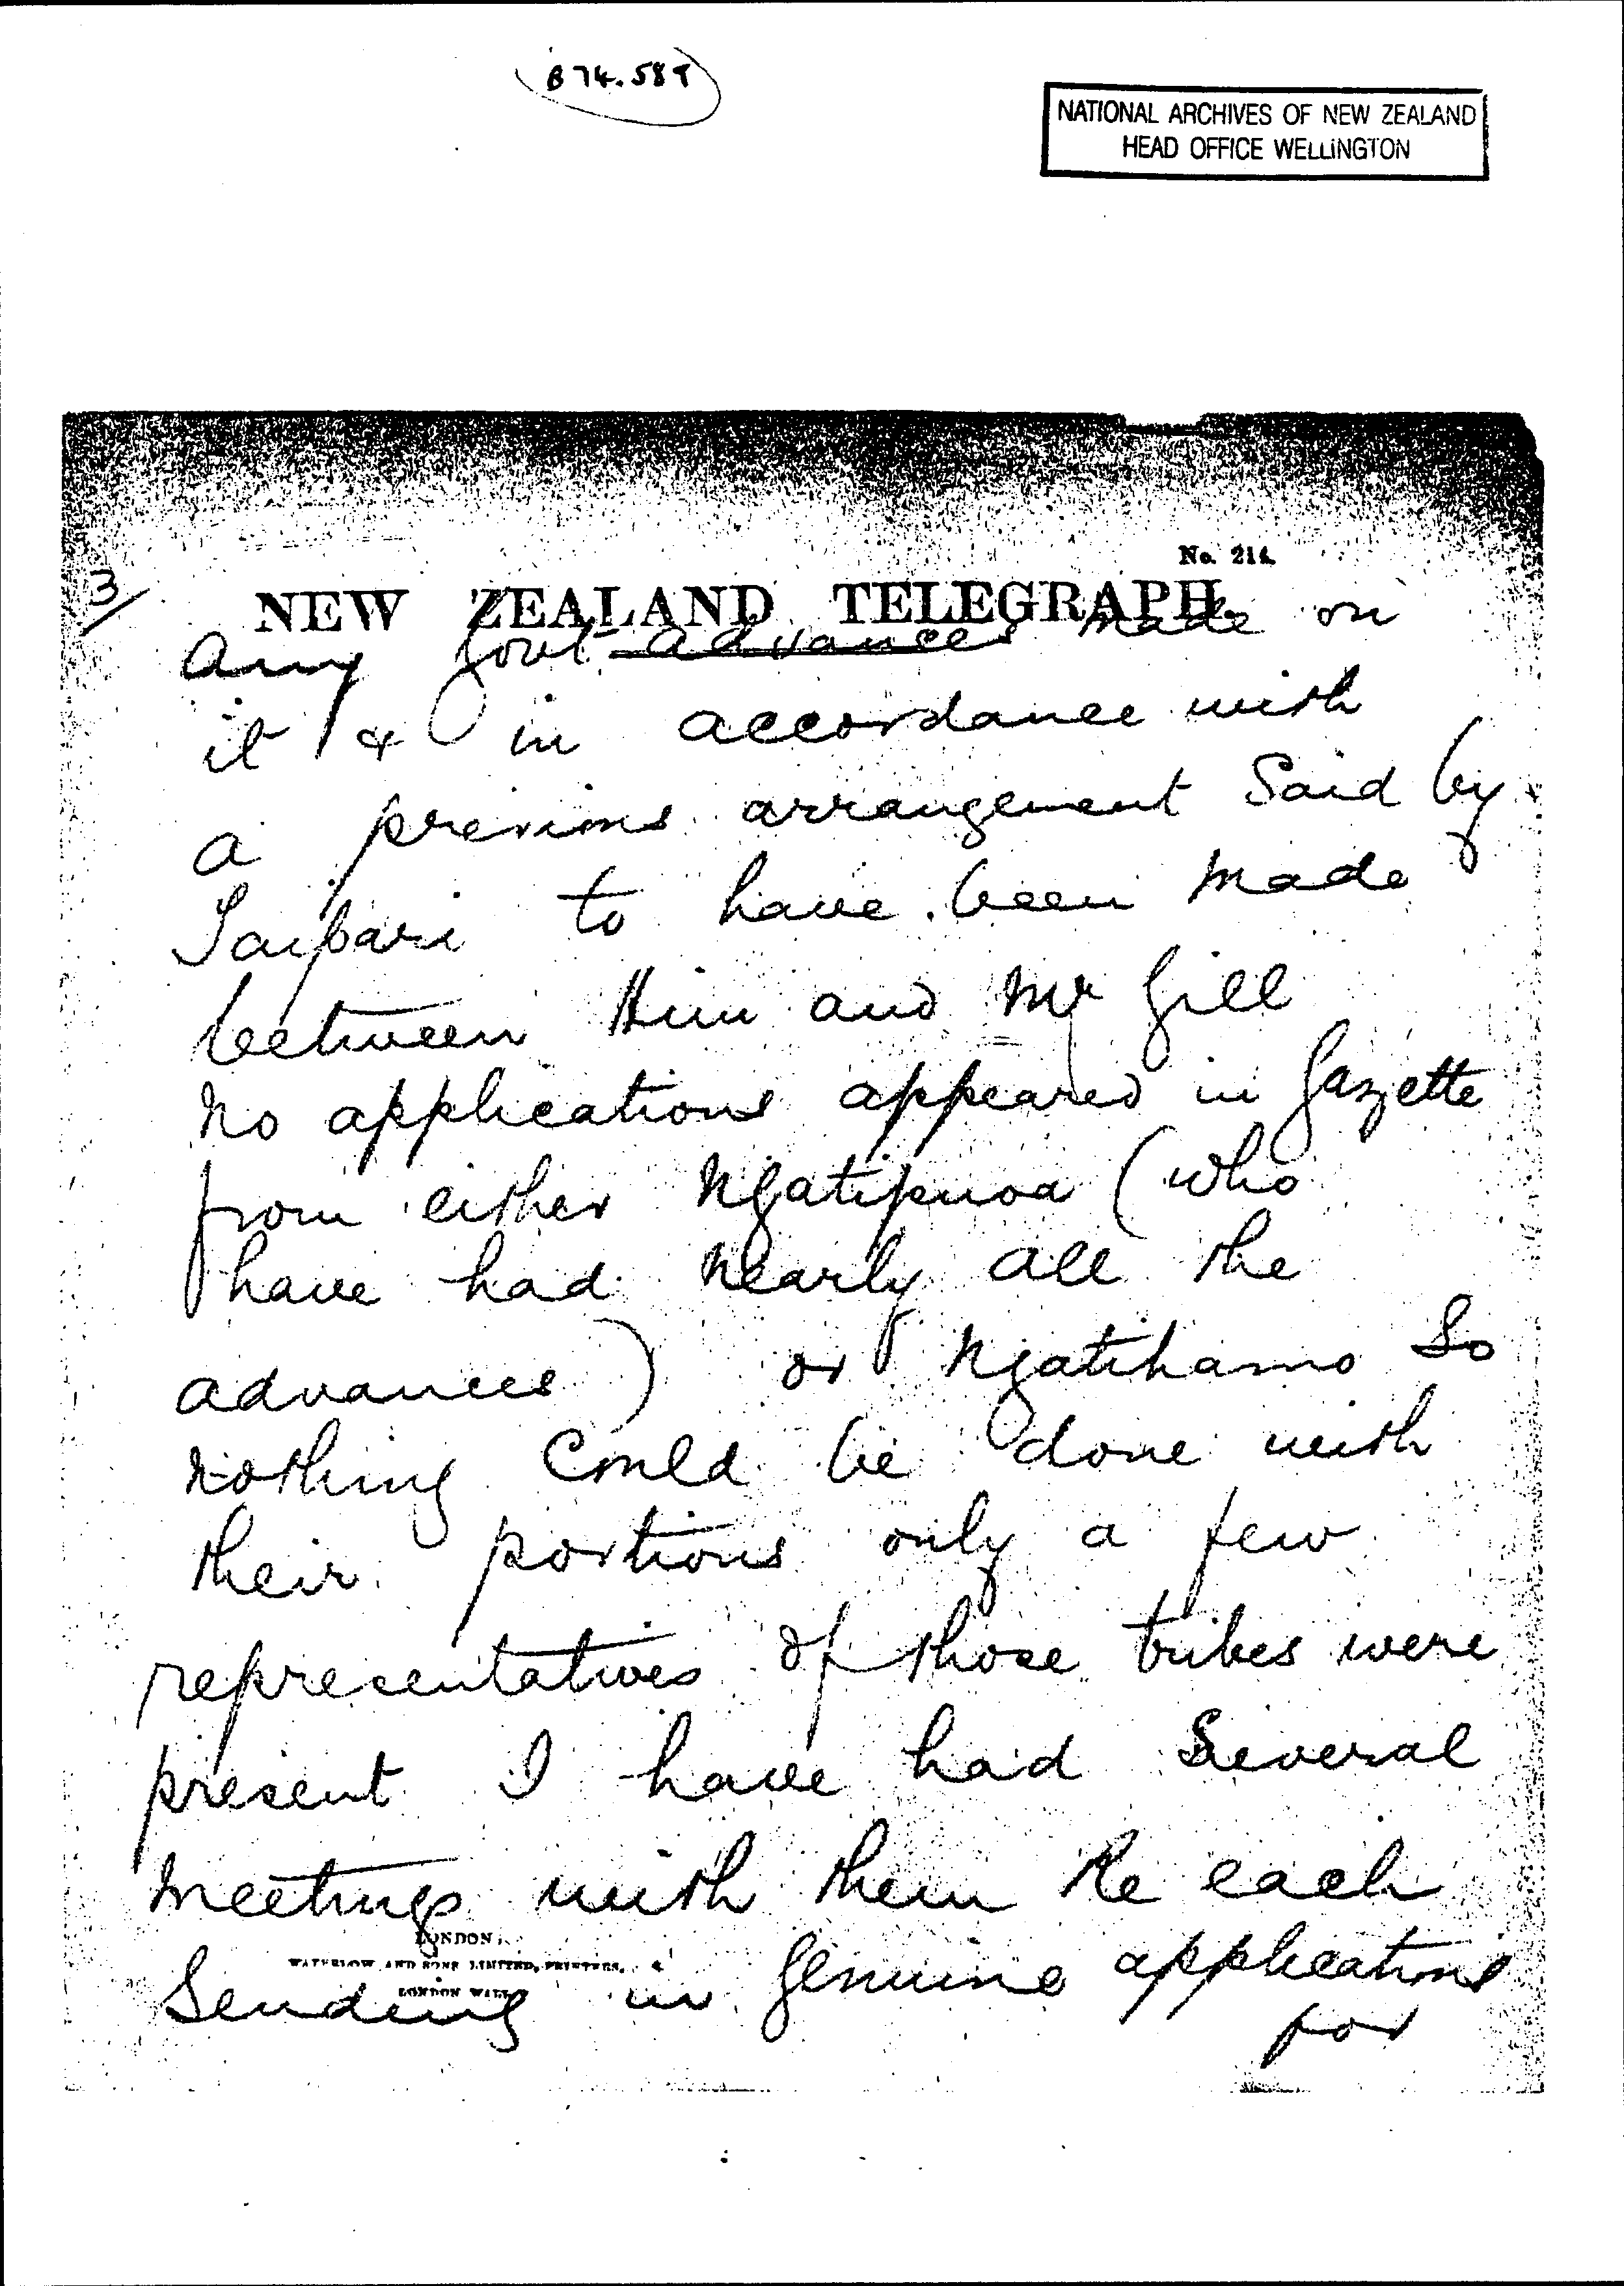 B 74.58T
NATIONAL ARCHIVES OF NEW ZEALAND
HEAD OFFICE WELLINGTON
No. 214.
3/
NEW ZEALAND TELEGRAPH.
any Govt advances made on
it & in accordance with
a previous arrangement Said by
Taipari to have been made
between Him and Mr Gill
no applications appeared in Gazette
from either Ngatipuoa (who
have had nearly all the
advances) or Ngatihamo So
nothing Could be done with
their portions only a few
representatives of those tribes were
present I have had Several
meetings with them Re each
LONDON:
WATERLOW AND SONS LIMITED, PRINTERS,
LONDON WALL
Sending in Genuine applications
for